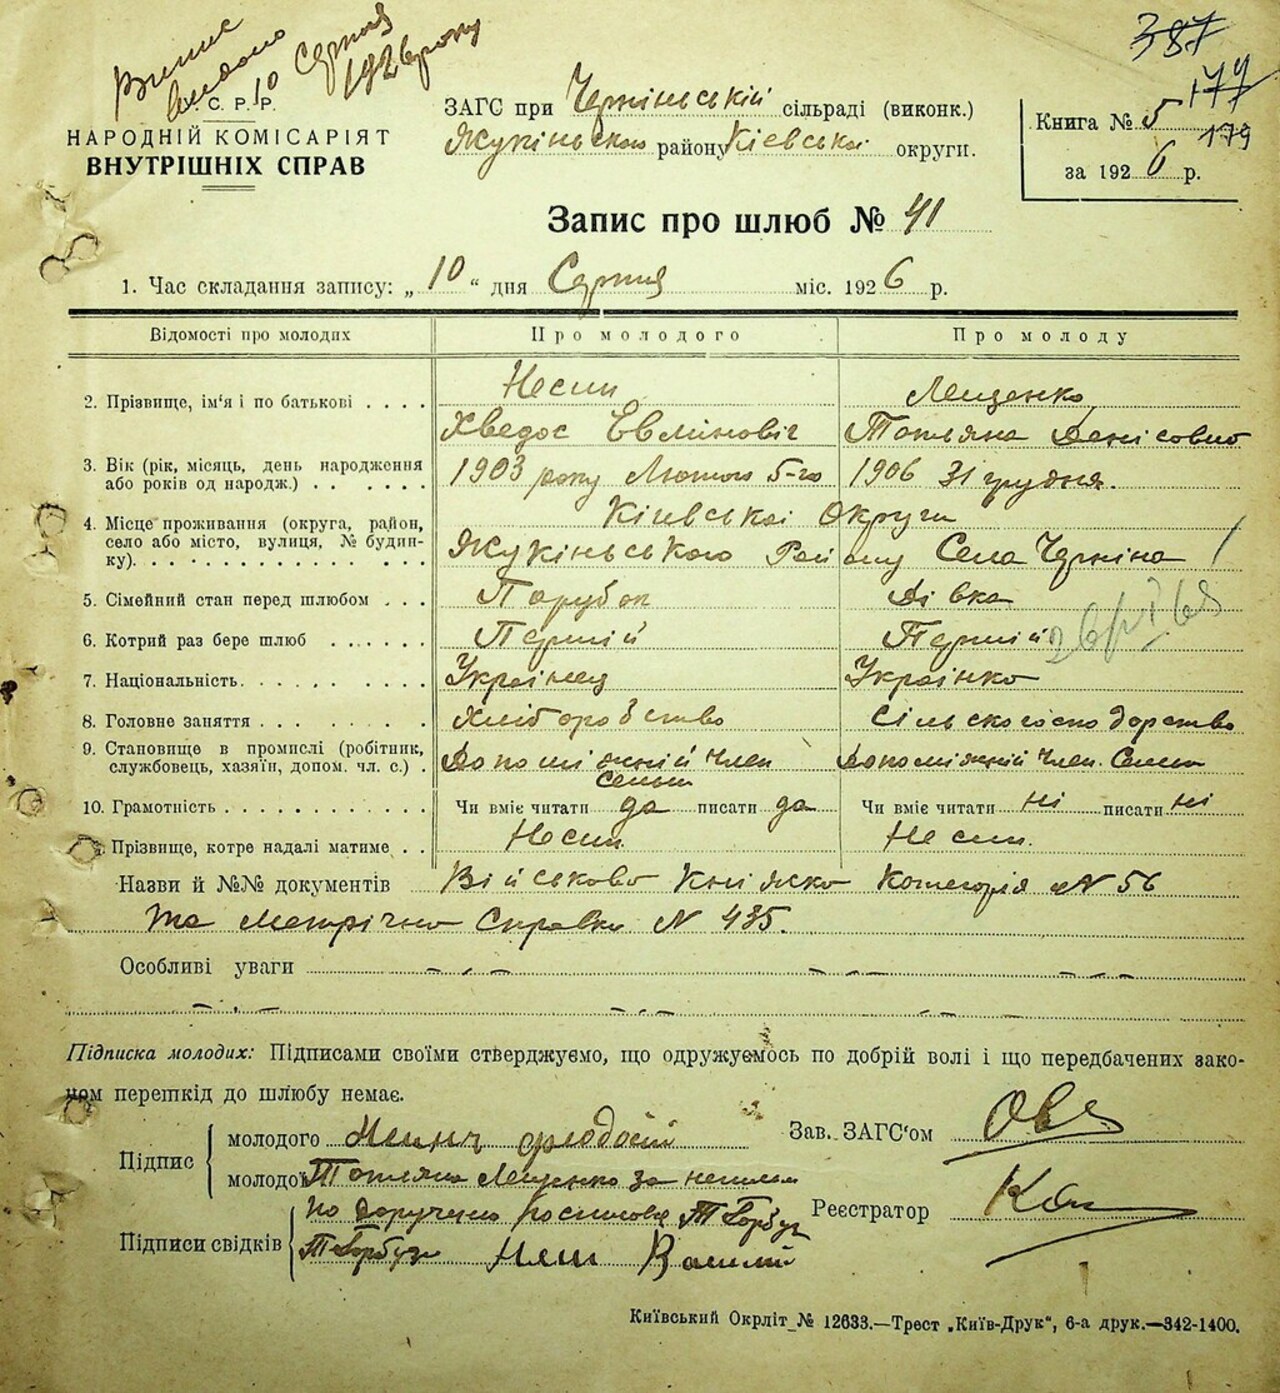 Випис
видано
10 Серпня
1926 року
387
177
179
У. С. Р. Р.
НАРОДНІЙ КОМІСАРІЯТ
ВНУТРІШНІХ СПРАВ
ЗАГС при Чернінській сільраді (виконк.)
Жукінського району Кіевськоі округи.
Книга № 5
за 1926 р.
Запис про шлюб № 41
1. Час складання запису: „10“ дня Серпня міс. 1926 р.
Відомості про молодих Про молодого Про молоду
2. Прізвище, ім'я і по батькові . . . . Несин Лещенко
Хведос Татьяна Денісовно
3. Вік (рік, місяць, день народження 1903 року Лютого 5-го 1906 31 грудня.
або років од народж.) . . . . . . .
4. Місце проживання (округа, район, Кіивськоі Округи
село або місто, вулиця, № будин- Жукіньського Району Села Черніна
ку). . . . . . . . . . . . . . .
5. Сімейний стан перед шлюбом . . . Парубок Дівка
6. Котрий раз бере шлюб . . . . . . Перший Перший
7. Національність. . . . . . . . . . Украінець Украінко
8. Головне заняття . . . . . . . . Хліборобство Сільскогосподарство
9. Становище в промислі (робітник, Допоміжній Член Допоміжній Член. Семьи
службовець, хазяїн, допом. чл. с.) . Семьи
10. Грамотність . . . . . . . . . . . Чи вміє читати да писати да Чи вміє читати ні писати ні
Прізвище, котре надалі матиме . . Несин. Несин.
Назви й №№ документів Військово Книжко Котегорія № 56
та Метрічна Справка N 435.
Особливі уваги
Підписка молодих: Підписами своїми стверджуємо, що одружуємось по добрій волі і що передбачених зако-
ном перешкід до шлюбу немає.
Підпис
молодого
Зав. ЗАГС'ом
молодої Татяна Лещенко за неписьм
по доручено росписовся Т Горбуз
Реєстратор
Підписи свідків Т Горбуз Василій
Київський Окрліт № 12633.—Трест „Київ-Друк“, 6-а друк.—342-1400.